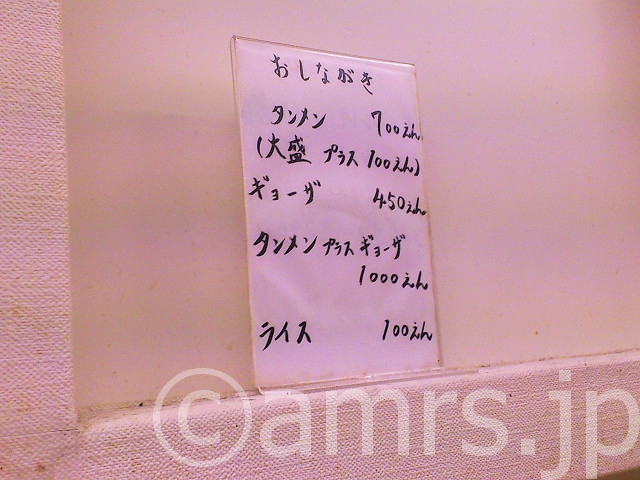 おしながき
タンメン 700えん
(大盛 プラス 100えん)
ギョーザ 450えん
タンメン プラス ギョーザ
1000えん
ライス 100えん
©amrs.jp